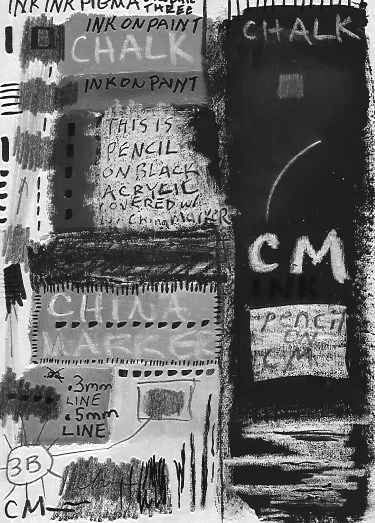 INK INK PIGMA
INK ON PAINT
CHALK
INK ON PAINT
THIS IS
PENCIL
ON BLACK
ACRYLIC
COVERED W/
China MARKER
CHINA
MARKER
.3mm
LINE
.5mm
LINE
3B
CM
CHALK
CM
INK
PENCIL
ON
CM